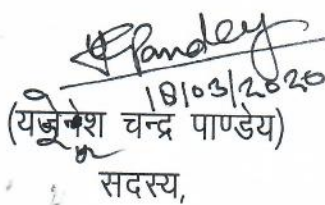 Pandey
18/03/2020
(यज्ञेश चन्द्र पाण्डेय)
सदस्य,